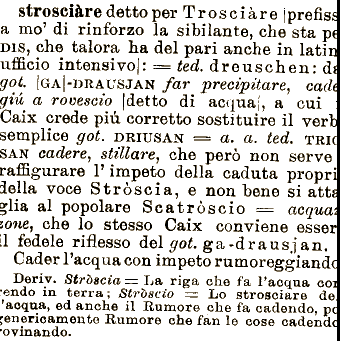 strosciàre detto per Trosciàre |prefiss
a mo' di rinforzo la sibilante, che sta pe
DIS, che talora ha del pari anche in latin
ufficio intensivo|: = ted. dreuschen: da
got. |GA|-DRAUSJAN far precipitare, cade
giú a rovescio |detto di acqua|, a cui i
Caix crede più corretto sostituire il verb
semplice got. DRIUSAN = a. a. ted. TRIO
SAN cadere, stillare, che però non serve
raffigurare l'impeto della caduta propri
della voce Stròscia, e non bene si atta
glia al popolare Scatròscio = acquaz
zone, che lo stesso Caix conviene esser
il fedele riflesso del got. ga-drausjan.
Cader l'acqua con impeto rumoreggiando
Deriv. Stròscia = La riga che fa l'acqua cor
rendo in terra; Stròscio = Lo strosciare de
l'acqua, ed anche il Rumore che fa cadendo, po
genericamente Rumore che fan le cose cadendo
rovinando.